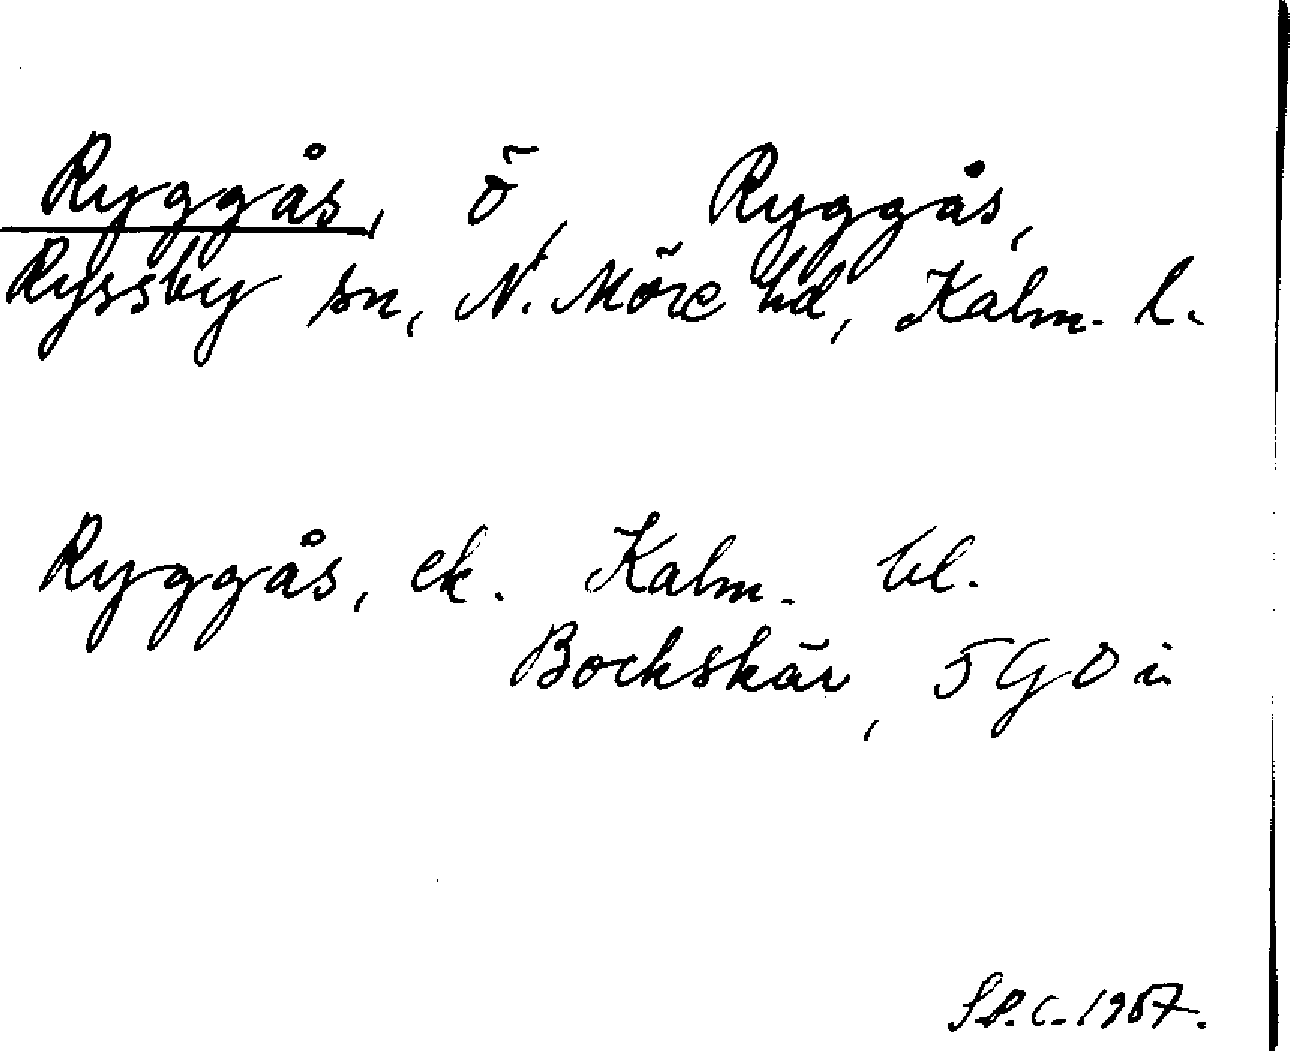 Ryggås, ö, Ryggås,
Ryssby sn, N. Möre hd, Kalm. l.
Ryggås, ek. Kalm. bl.
Bockskär, 5 G O i
1957.